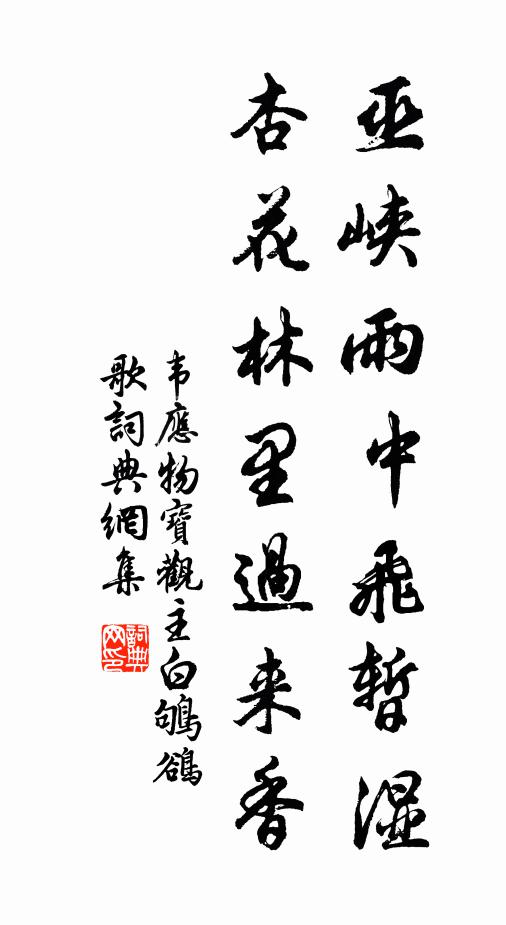 巫峡雨中飛暫湿
杏花林里過来香
韦應物寶觀主白鴝鵒
歌詞典網集
詞典网印